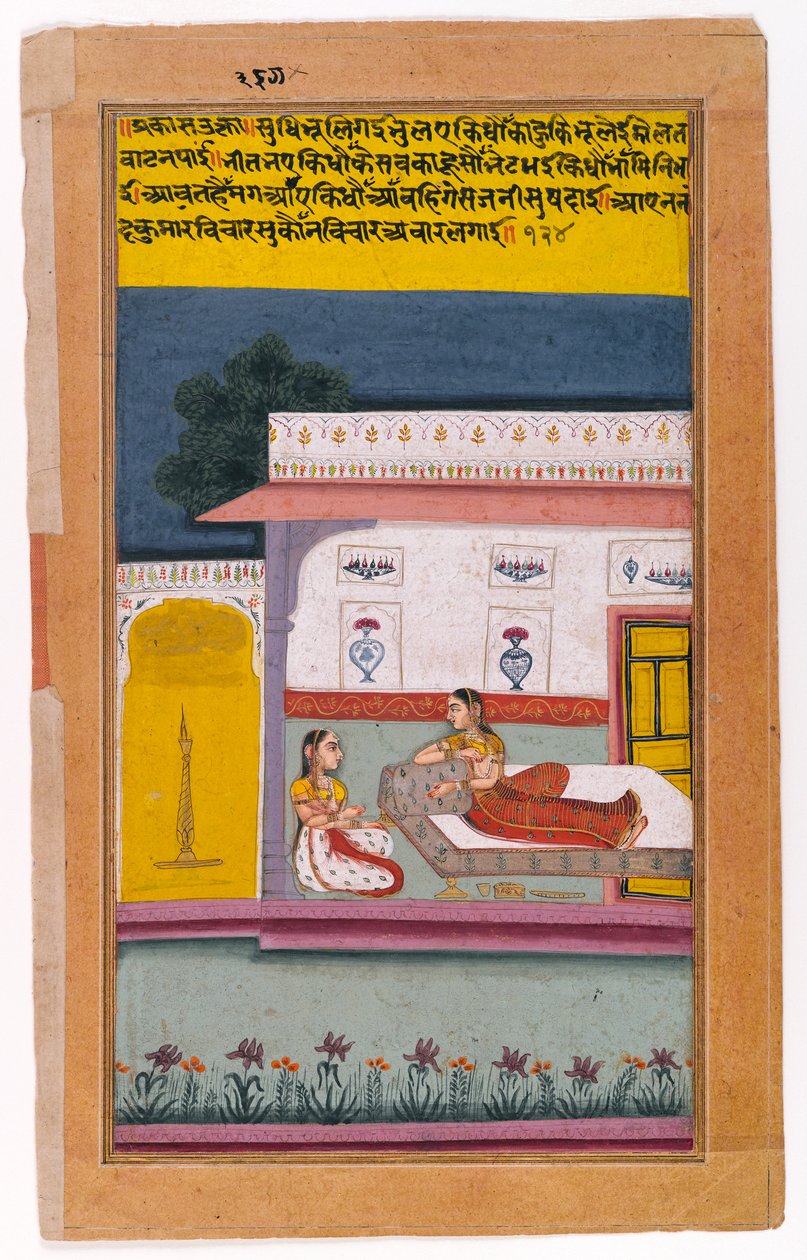 ॥प्रकासउत्का॥सुधिभूलिगईभुलएकिधौँकाहुकिभूलेईडोलत
वाटनपाई॥भीतभएकिधौँकेसवकाहूसौँभेटभईकिधौँभाँमिनिभा
ई।आवतहैँमगआँएकिधौँआँवहिगेसजनीसुषदाई॥आएननं
दकुमारविचारसुकौँनविचारअवारलगाई॥१२४